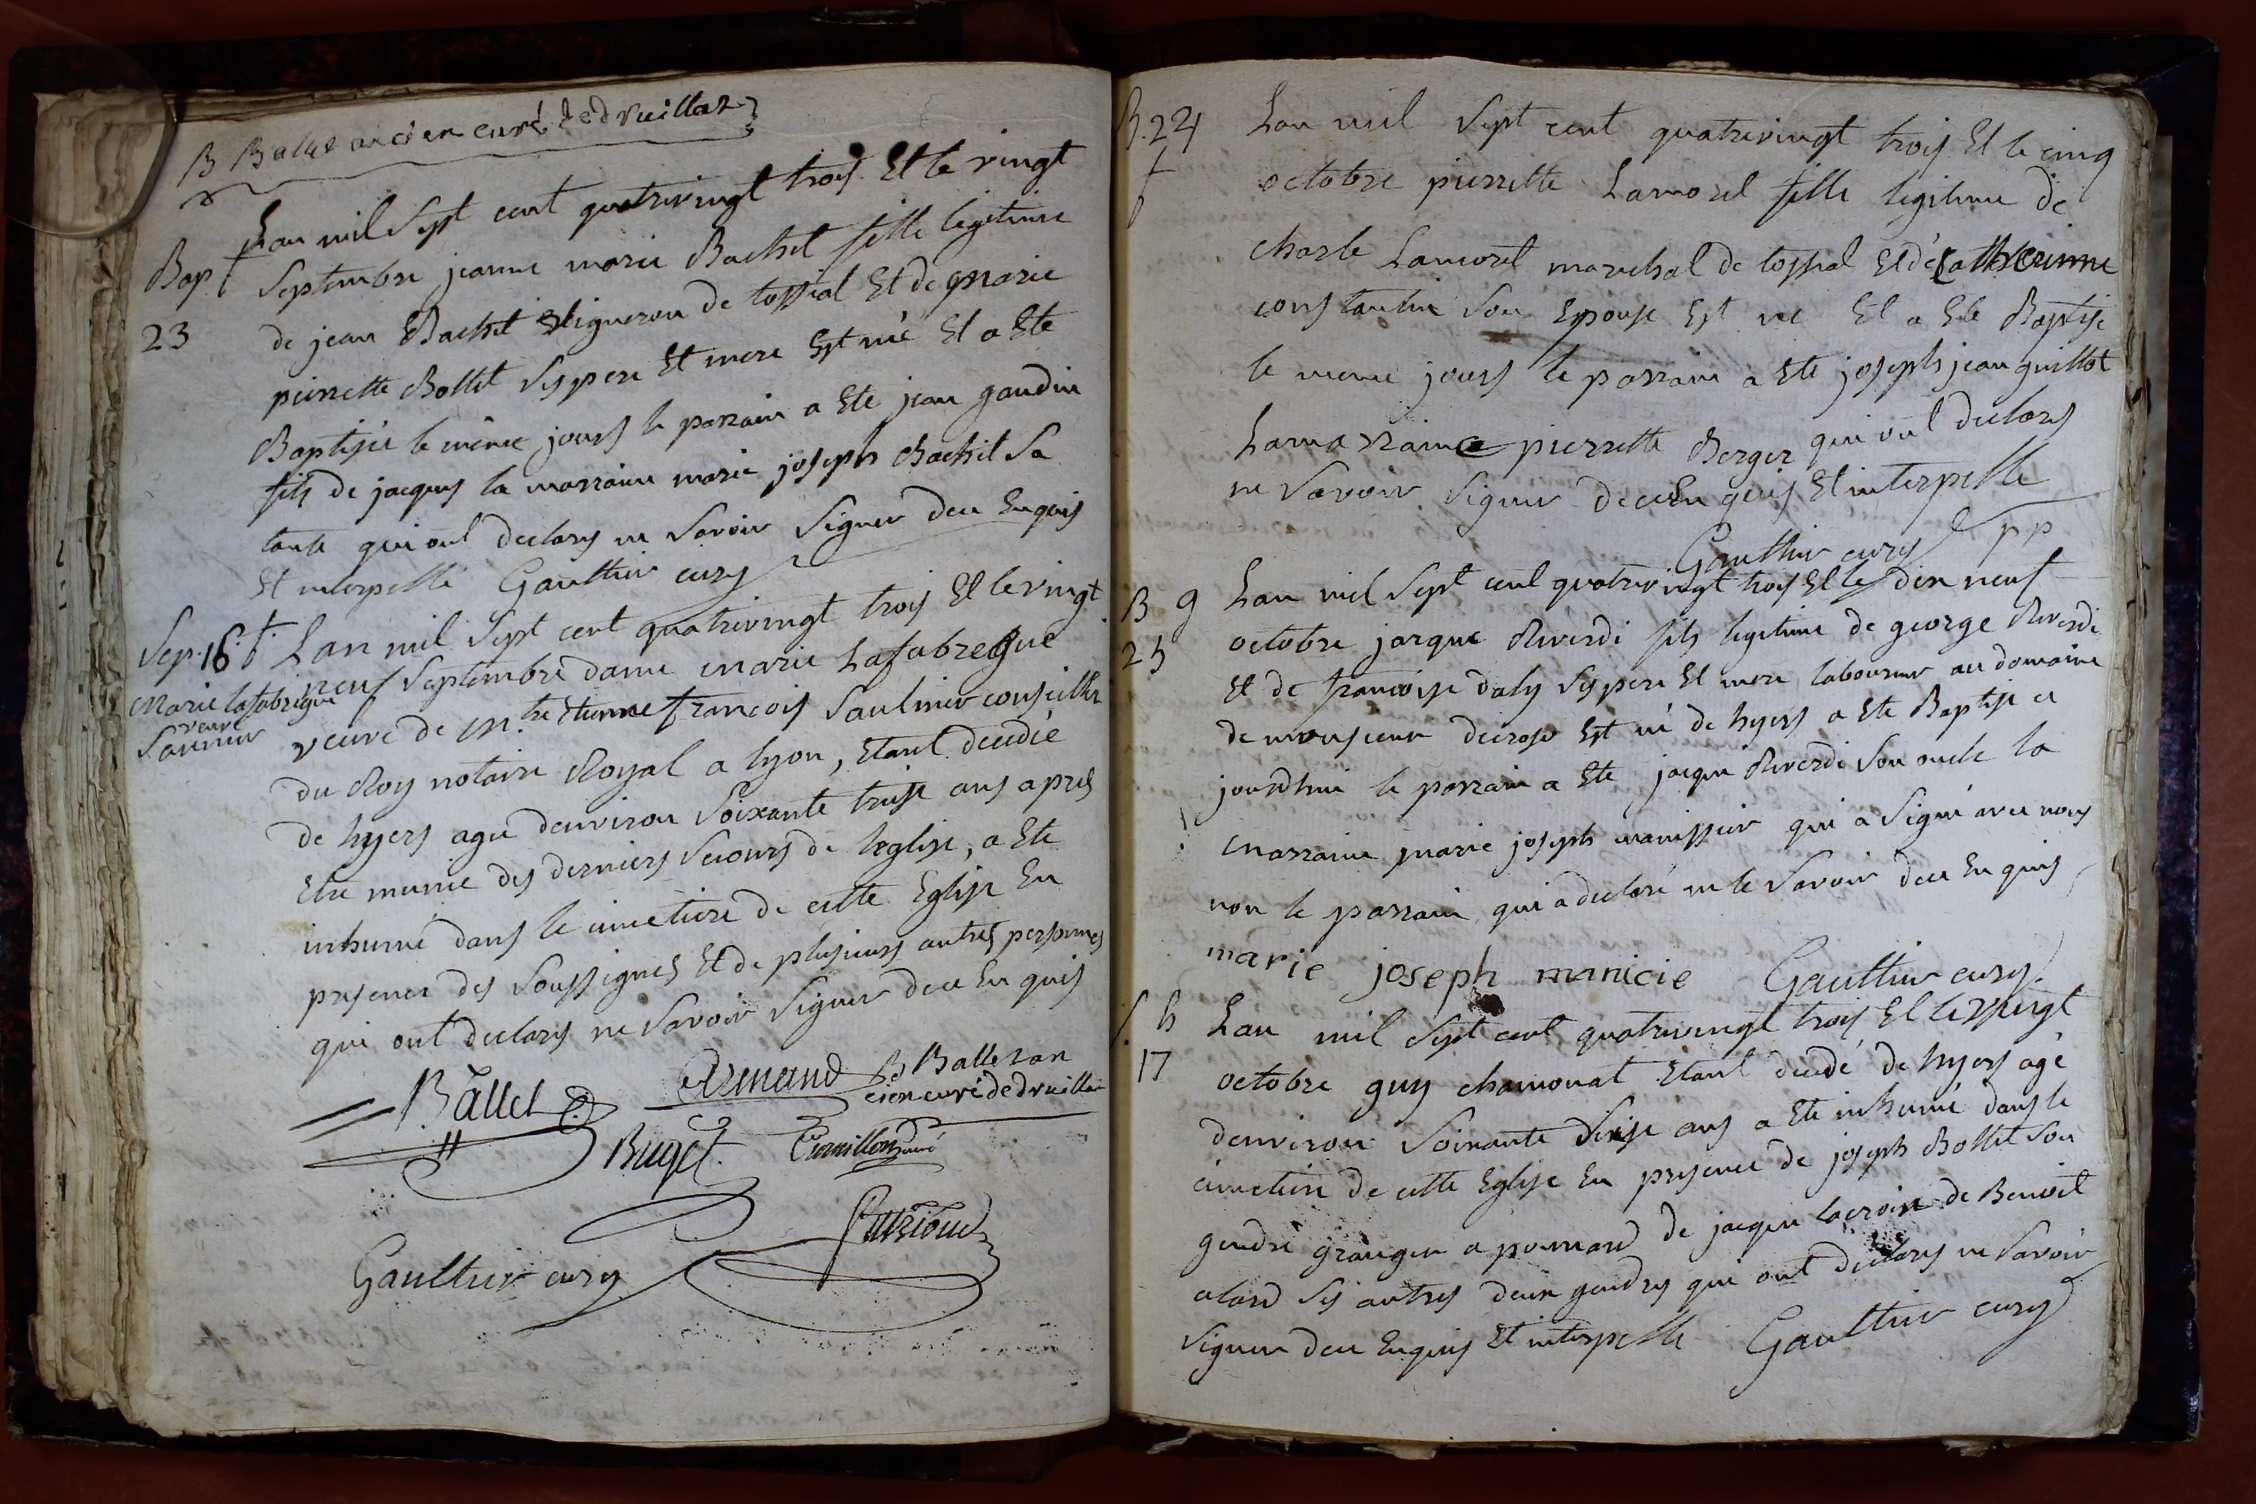 B Ballet ancien curé de druillaz
Bap. t
23
Lan mil Sept cent quatrevingt trois Et le vingt
Septembre jeanne marie Bachet fille legitime
de jean Bachet Vigneron de tossial Et de marie
pierrette Bollet Ses pere Et mere Est née Et a Ete
Baptisée le même jours le parrain a Ete jean gaudin
fils de jacques la marraine marie joseph Bachet Sa
tante qui ont declarés ne Savoir Signer dece Enquis
Et interpellé Gaultier curé
Sep. 16 t
marie lafabregue
veuve
Saunier
Lan mil Sept cent quatrevingt trois Et le vingt
neuf Septembre dame marie Lafabregue
veuve de M.tre Etienne francois Saulnier conseiller
du Roy notaire Royal a lyon, Etant decedée
de hyers agée denviron Soixante treise ans apres
Etre munie des derniers Secours de leglise, a Ete
inhumé dans le cimetiere de cette Eglise En
presence des Soussignés Et de plusieurs autres personnes
qui ont declarés ne Savoir Signer dece Enquis
B. Ballet Armand B Ballet an
cien curé de druillaz
Buget Cranillon curé
Gaultier curé
B. 24
t
Lan mil Sept cent quatrevingt trois Et le cinq
octobre pierrette Lamorel fille legitime de
charle Lamorel marechal de tossial Et de Catherinne
constantin Son Epouse Est né Et a Ete Baptise
le meme jours le parrain a Ete joseph jean guillot
Lamarraine pierrette Berger qui ont declarés
ne Savoir Signer dece Enquis Et interpelle
Gaultier curé pp
B g
25
Lan mil Sept cent quatrevingt trois Et le dix neuf
octobre jacque Riverdi fils legitime de george Riverdi
Et de francoise daly Ses pere Et mere laboureur au domaine
de monsieur decroso Est né de hyers a Ete Baptise ce
jourdhui le parrain a Ete jacque Riverdi Son oncle la
marraine marie joseph manissier qui a Signé avec nous
non le parrain qui a declaré ne le Savoir dece Enquis
marie joseph manicie Gaultier curé
S. h
17
Lan mil Sept cent quatrevingt trois Et le vingt
octobre guy chamonat Etant decedé de hyers agé
denviron Soixante Seise ans a Ete inhumé dans le
cimetiere de cette Eglise En presence de joseph Bollet Son
gendre granger a pommard de jacque lacroix de Benoit
alard Ses autres deux gendres qui ont declarés ne Savoir
Signer dece Enquis Et interpelle Gaultier curé